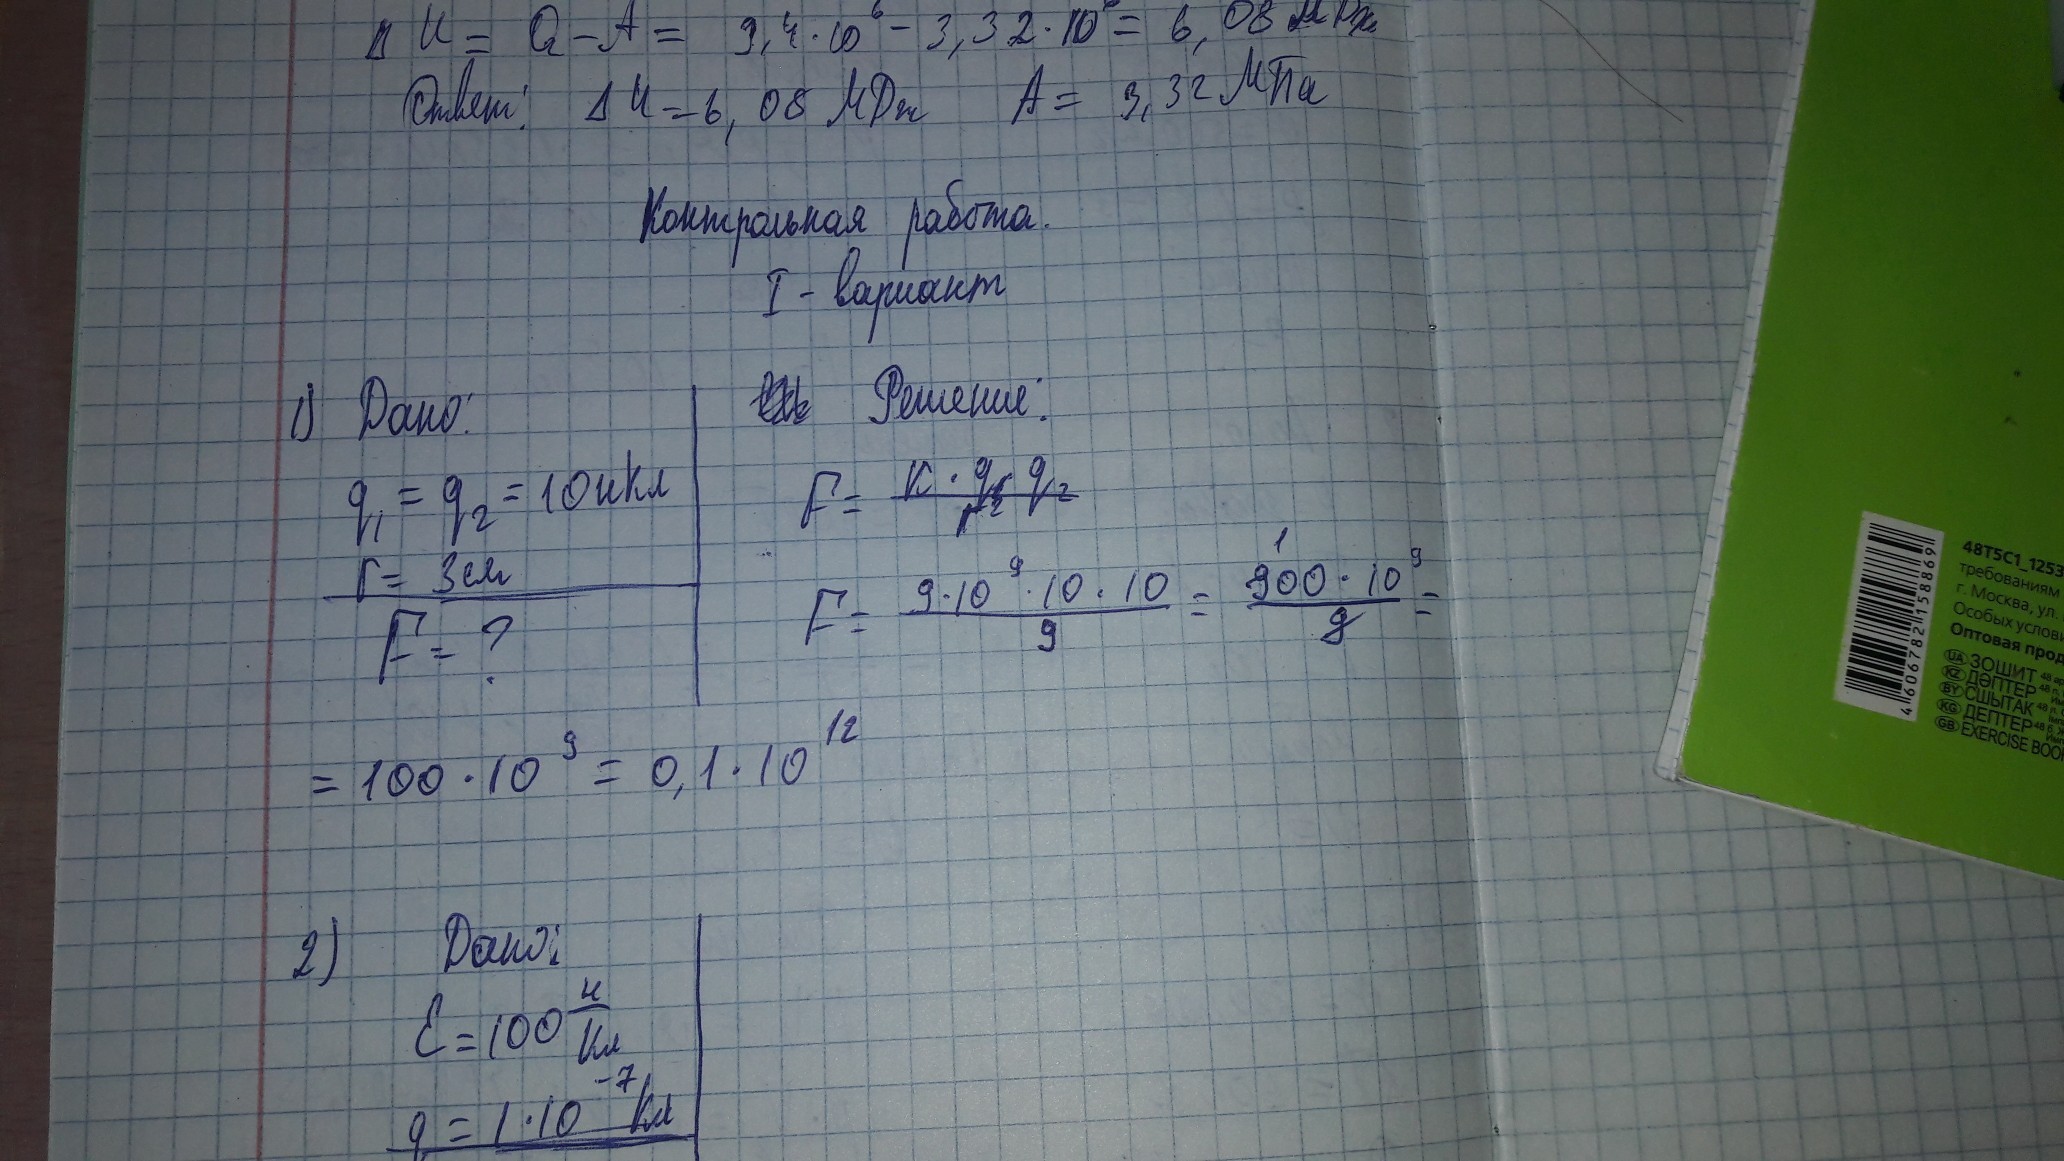 Δ U = Q - A = 9,4·10⁶ - 3,32·10⁶ = 6,08 МДж
Ответ: ΔU = 6,08 МДж A = 3,32 МПа
Контрольная работа.
I - вариант
1) Дано:
q₁ = q₂ = 10 нКл
r = 3 см
F = ?
Решение:
F = к · q₁ q₂ / r²
F = 9·10⁹·10·10 / 9 = 900·10⁹ / 9 =
= 100·10⁹ = 0,1·10¹²
2) Дано:
E = 100 н/Кл
q = 1·10⁻⁷ Кл
48T5C1_1253
требованиям
г. Москва, ул.
Особых услови
Оптовая прод
UA ЗОШИТ
KZ ДӘПТЕР
BY СШЫТАК
KG ДЕПТЕР
GB EXERCISE BOO
4 606782 158869